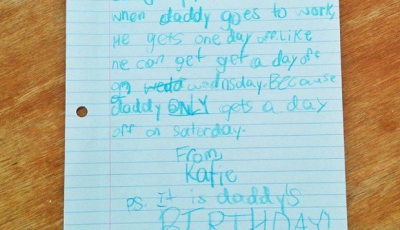 when daddy goes to work,
He gets one day off. Like
he can get get a day off
on wednsday. BECause
daddy ONLY gets a day
off on saturday.
From,
Katie
PS. It is daddy's
BIRTHDAY!